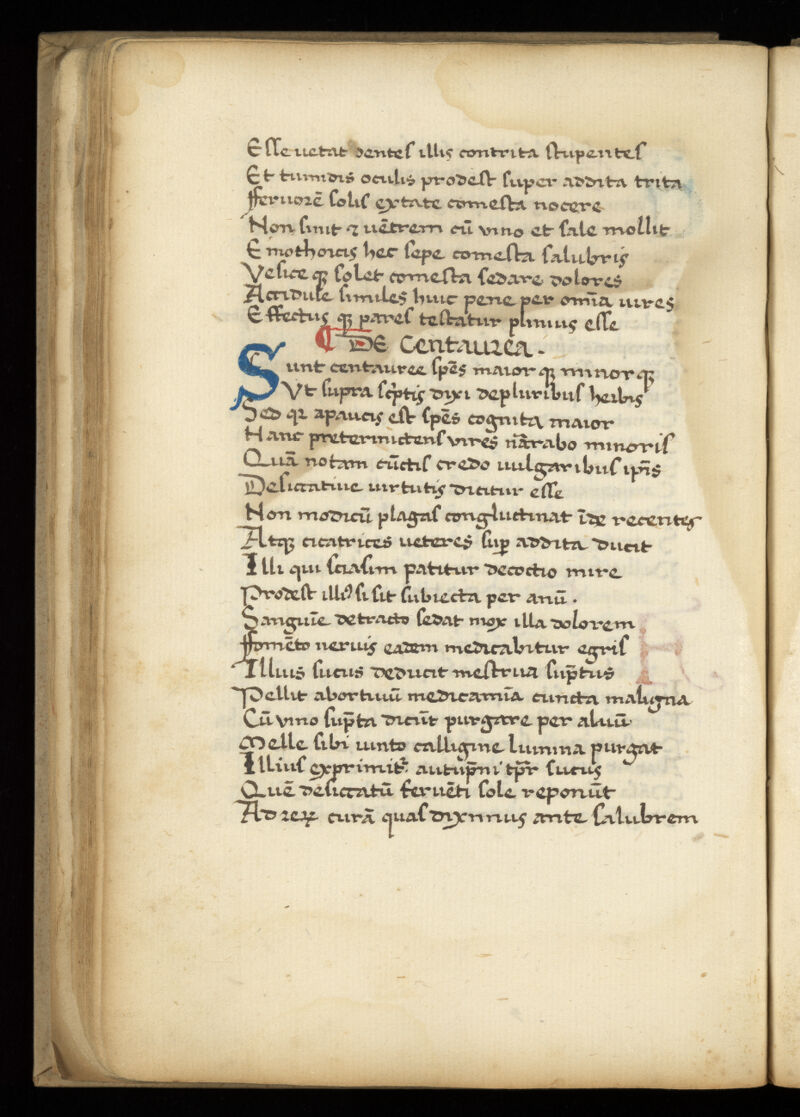 Esse uetat dentes illis contrita stupentes
Et tumidis oculis prodest super addita trita
fferuorē solis estate comesta nocere
Non sinit ⁊ uētrem cū vino et sale mollit
E mothoicis hec sepe comesta salubris
Vesice qȝ solet comesta sedare dolores
Acidule similes huic pene per omīa uires
Effectus qȝ pares testatur plinius esse
¶ De Centaurea.
Sunt centauree spēs maior qȝ minor qȝ
Vt supra scͥptis dixi depluribus herbis
Sed qȝ apaucis est spēs cognita maior
Hanc pretermictens vires nārrabo minoris
Quā notam cūctis credo uulgaribus ipīs
Desiccatiue uirtutis dicitur esse
Non modicū plagas conglutinat īde recentes
Atqȝ cicatrices ueteres suꝑ addita ducit
Illi qui sciasim patitur decoctio mire
Prodest illiꝰ si sit subiecta per anū.
Sanguīe detracto sedat mox illa dolorem
ffomēto neruis eadem medicabitur egris
Illius sucus deducit mestrua sūptus
Pellit abortiuū medicamīa cuncta maligna
Cū vino sūpta dicūt purgare per aluū
Melle sibi iunto calligine lumina purgat
Illius exprimitᷣ autūpni tꝑr sucus
Quē desiccatū feruēti sole reponūt
Ad rerꝝ curā quas diximus ante salubrem